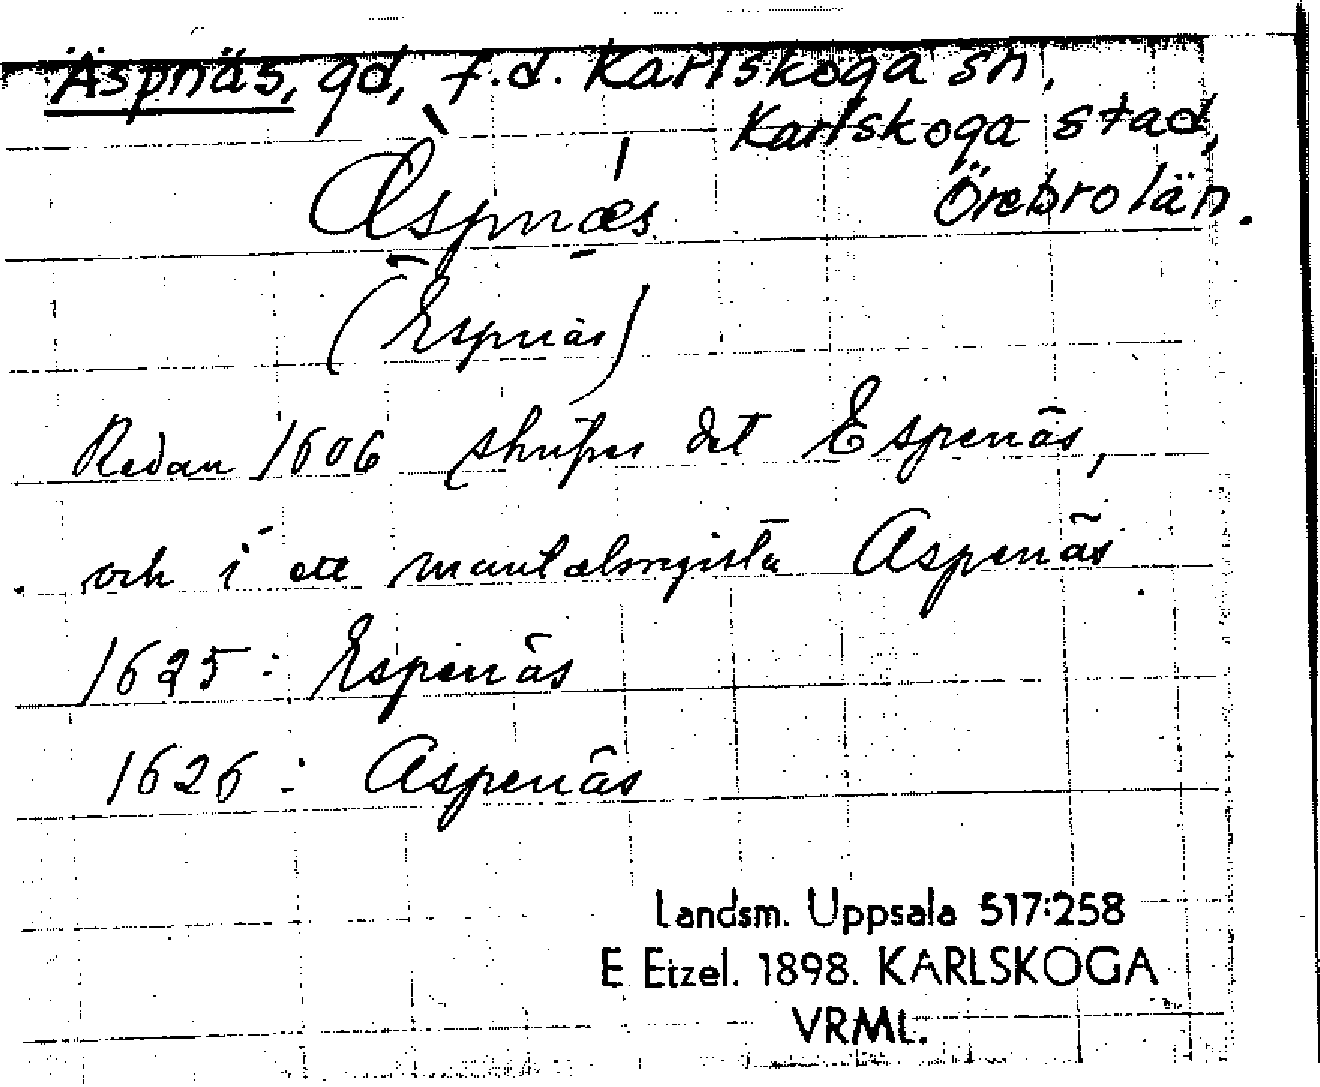 Äspnäs, gd, f.d. Karlskoga sn,
Karlskoga stad,
Örebro län.
Æspnæs
(Espnäs)
Redan 1606 skrifves det Espenäs,
och i ett mantalsregister Aspenäs
1625: Espenäs
1626: Aspenäs
Landsm. Uppsala 517:258
E Etzel. 1898. KARLSKOGA
VRML.